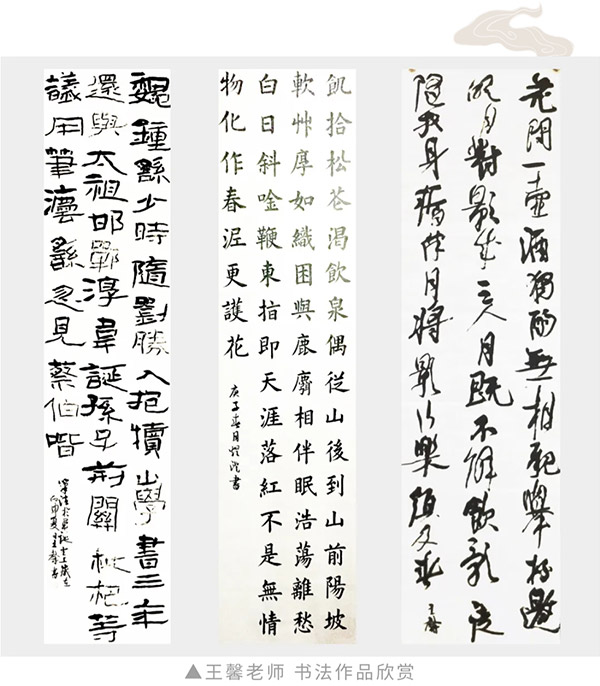 魏鍾繇少時隨劉勝入抱犢山學書三年
還與太祖邯鄲淳韋誕孫子荊關枇杷等
議用筆灋繇忽見蔡伯喈
飢拾松花渴飲泉偶從山後到山前陽坡
軟艸厚如織困與鹿麛相伴眠浩蕩離愁
白日斜唫鞭東指即天涯落紅不是無情
物化作春泥更護花
庚子春月 書
花間一壺酒獨酌無相親舉杯邀
明月對影成三人月既不解飲影徒
隨我身暫伴月將影行樂須及春
王馨
▲王馨老师 书法作品欣赏